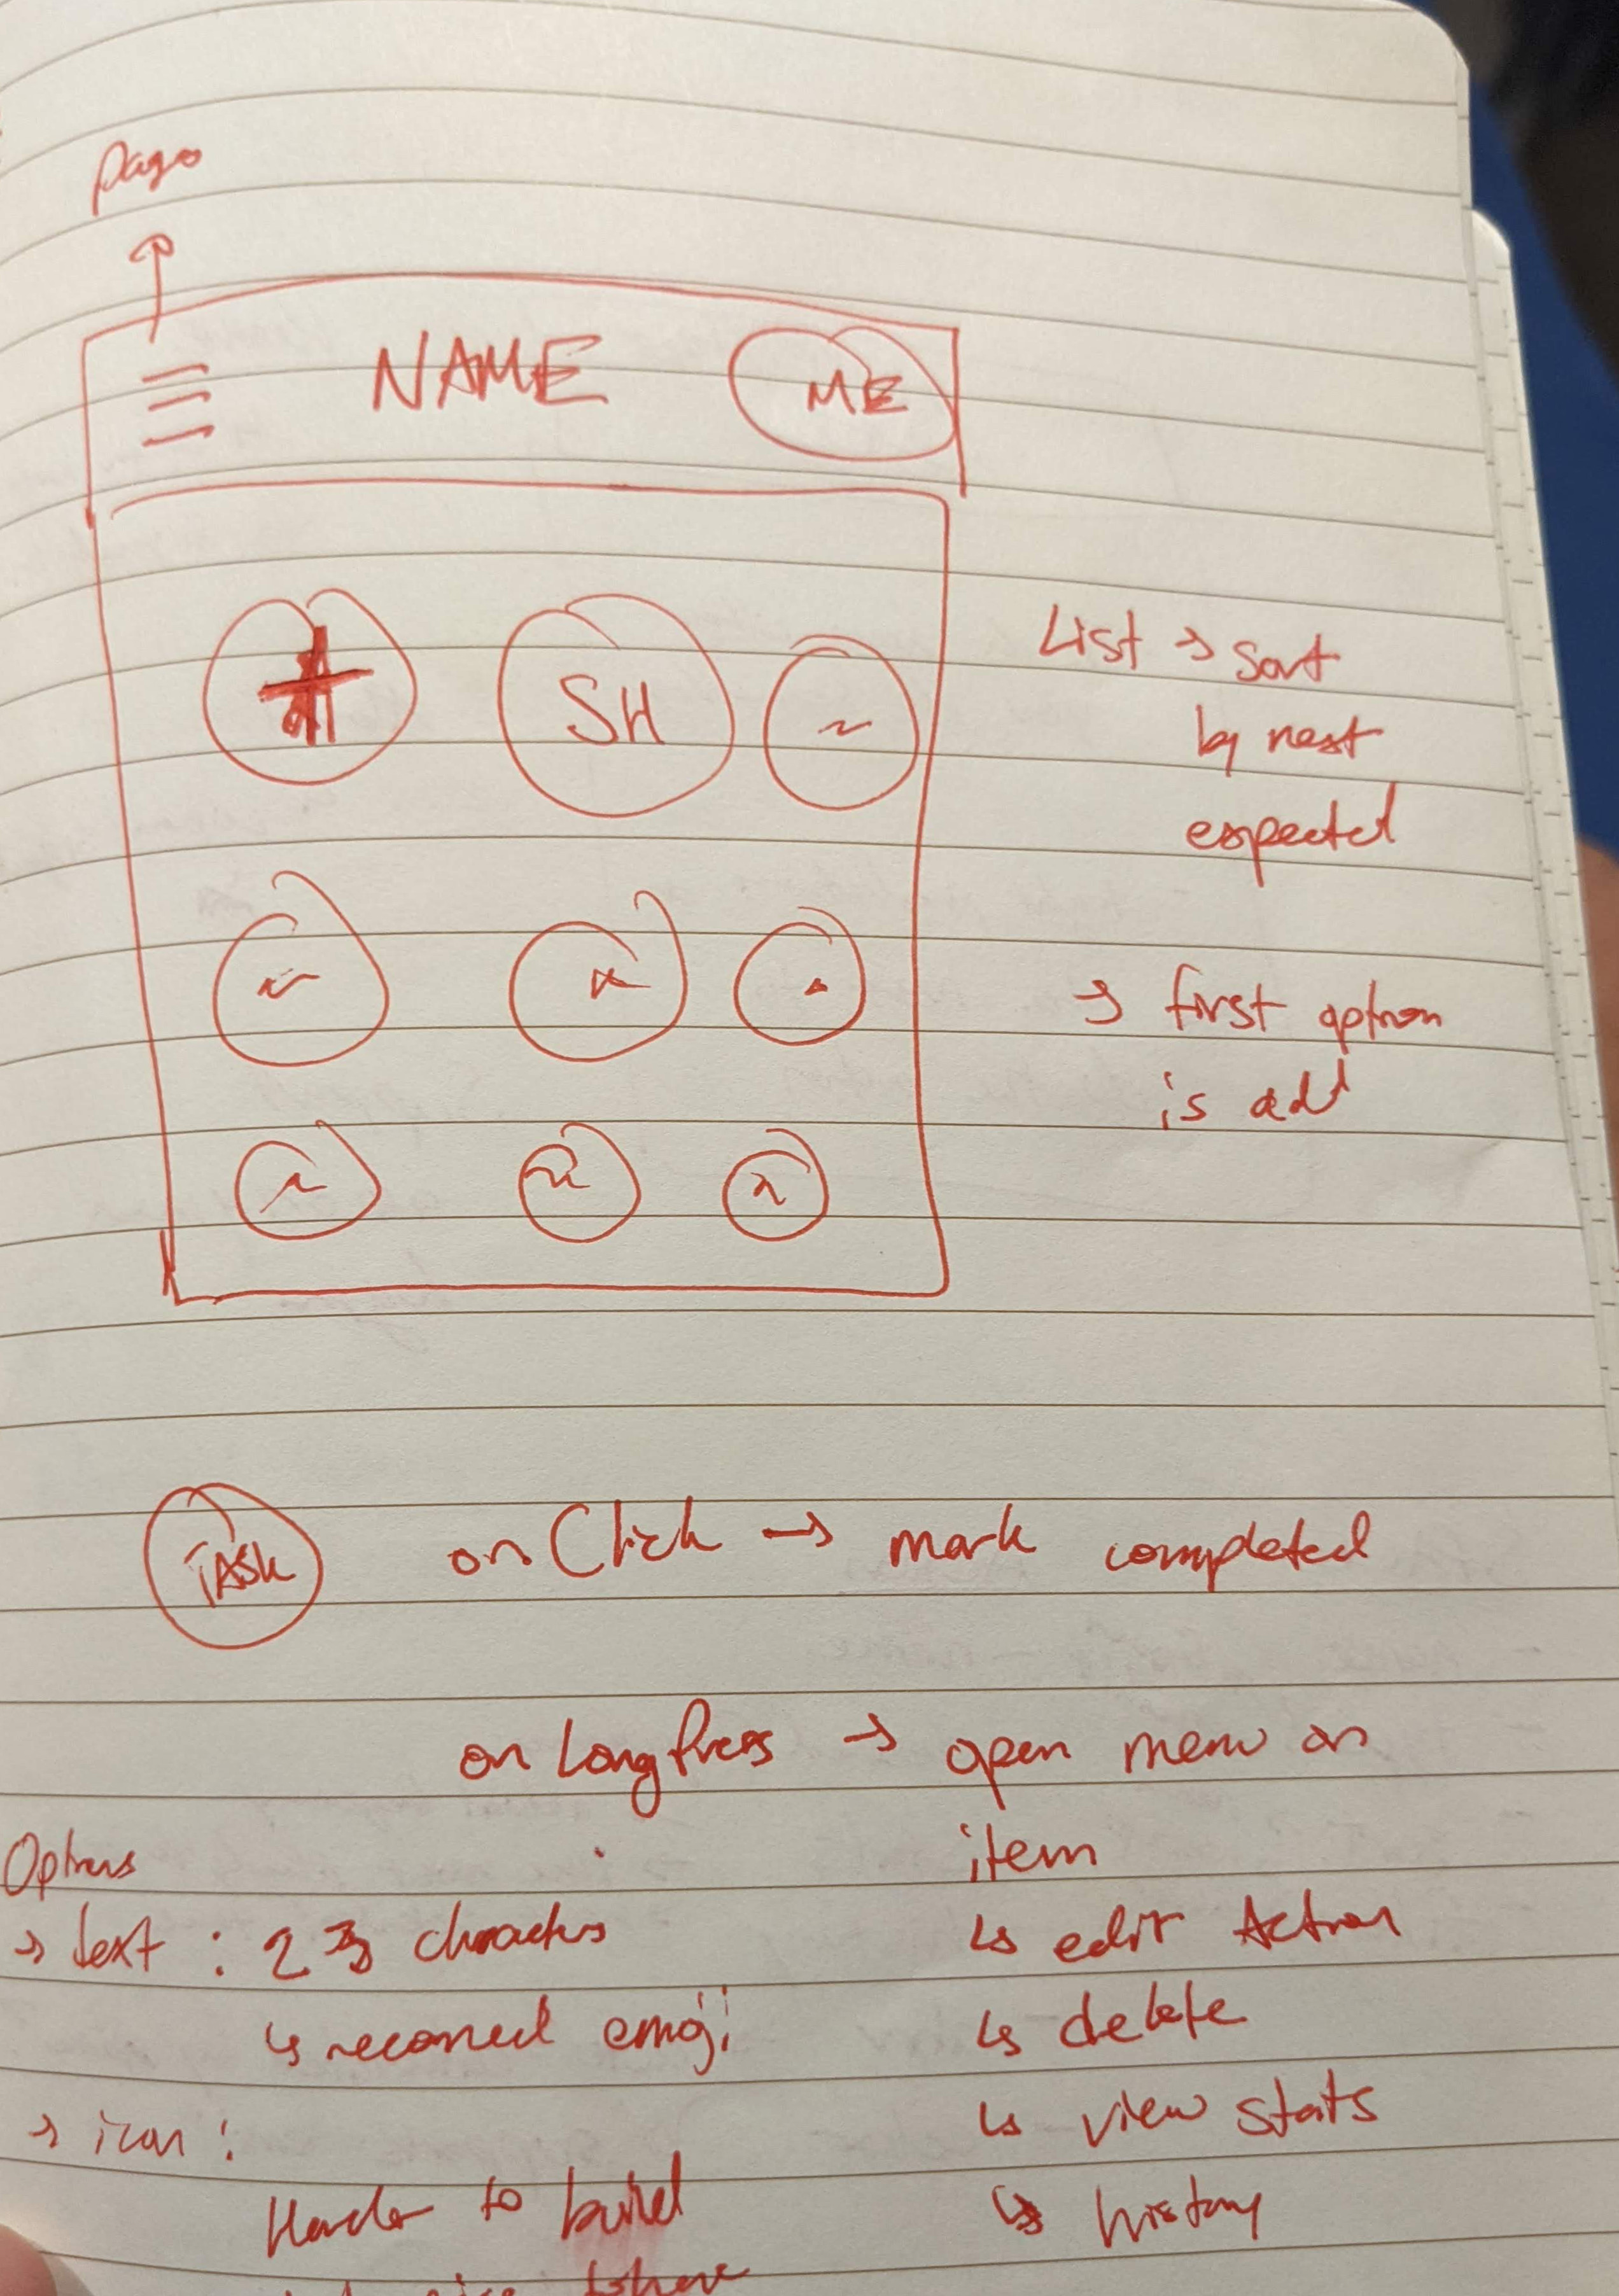 page
NAME
ME
+
SH
List → sort
by next
expected
→ first option
is add
TASK
onClick → mark completed
onLongPress → open menu on
item
↳ edit Action
↳ delete
↳ view stats
↳ history
Options
→ text : 2 3 characters
↳ recomed emoji
→ icon :
Harder to build